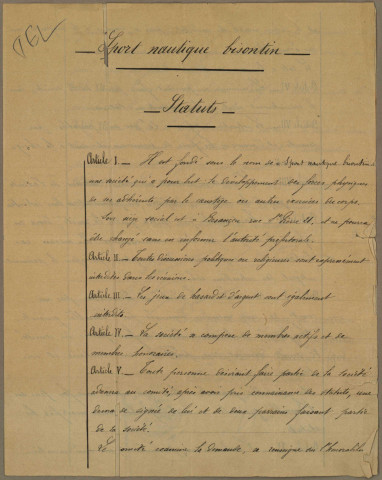 Sport nautique bisontin
Statuts
Article I. — Il est fondé sous le nom de « Sport nautique bisontin »
une société qui a pour but le développement des forces physiques
de ses adhérents par le canotage ou autres exercices du corps.
Son siège social est à Besançon rue St Pierre 21, et ne pourra
être changé sans en informer l'autorité préfectorale.
Article II. — Toutes discussions politiques ou religieuses sont expressément
interdites dans les réunions.
Article III. — Les jeux de hasard et d'argent sont également
interdits.
Article IV. — La société se compose de membres actifs et de
membres honoraires.
Article V. — Toute personne désirant faire partie de la société
adresse au comité, après avoir pris connaissance des statuts, une
demande signée de lui et de deux parrains faisant partie
de la société.
Le comité examine la demande, se renseigne sur l'honorabilité